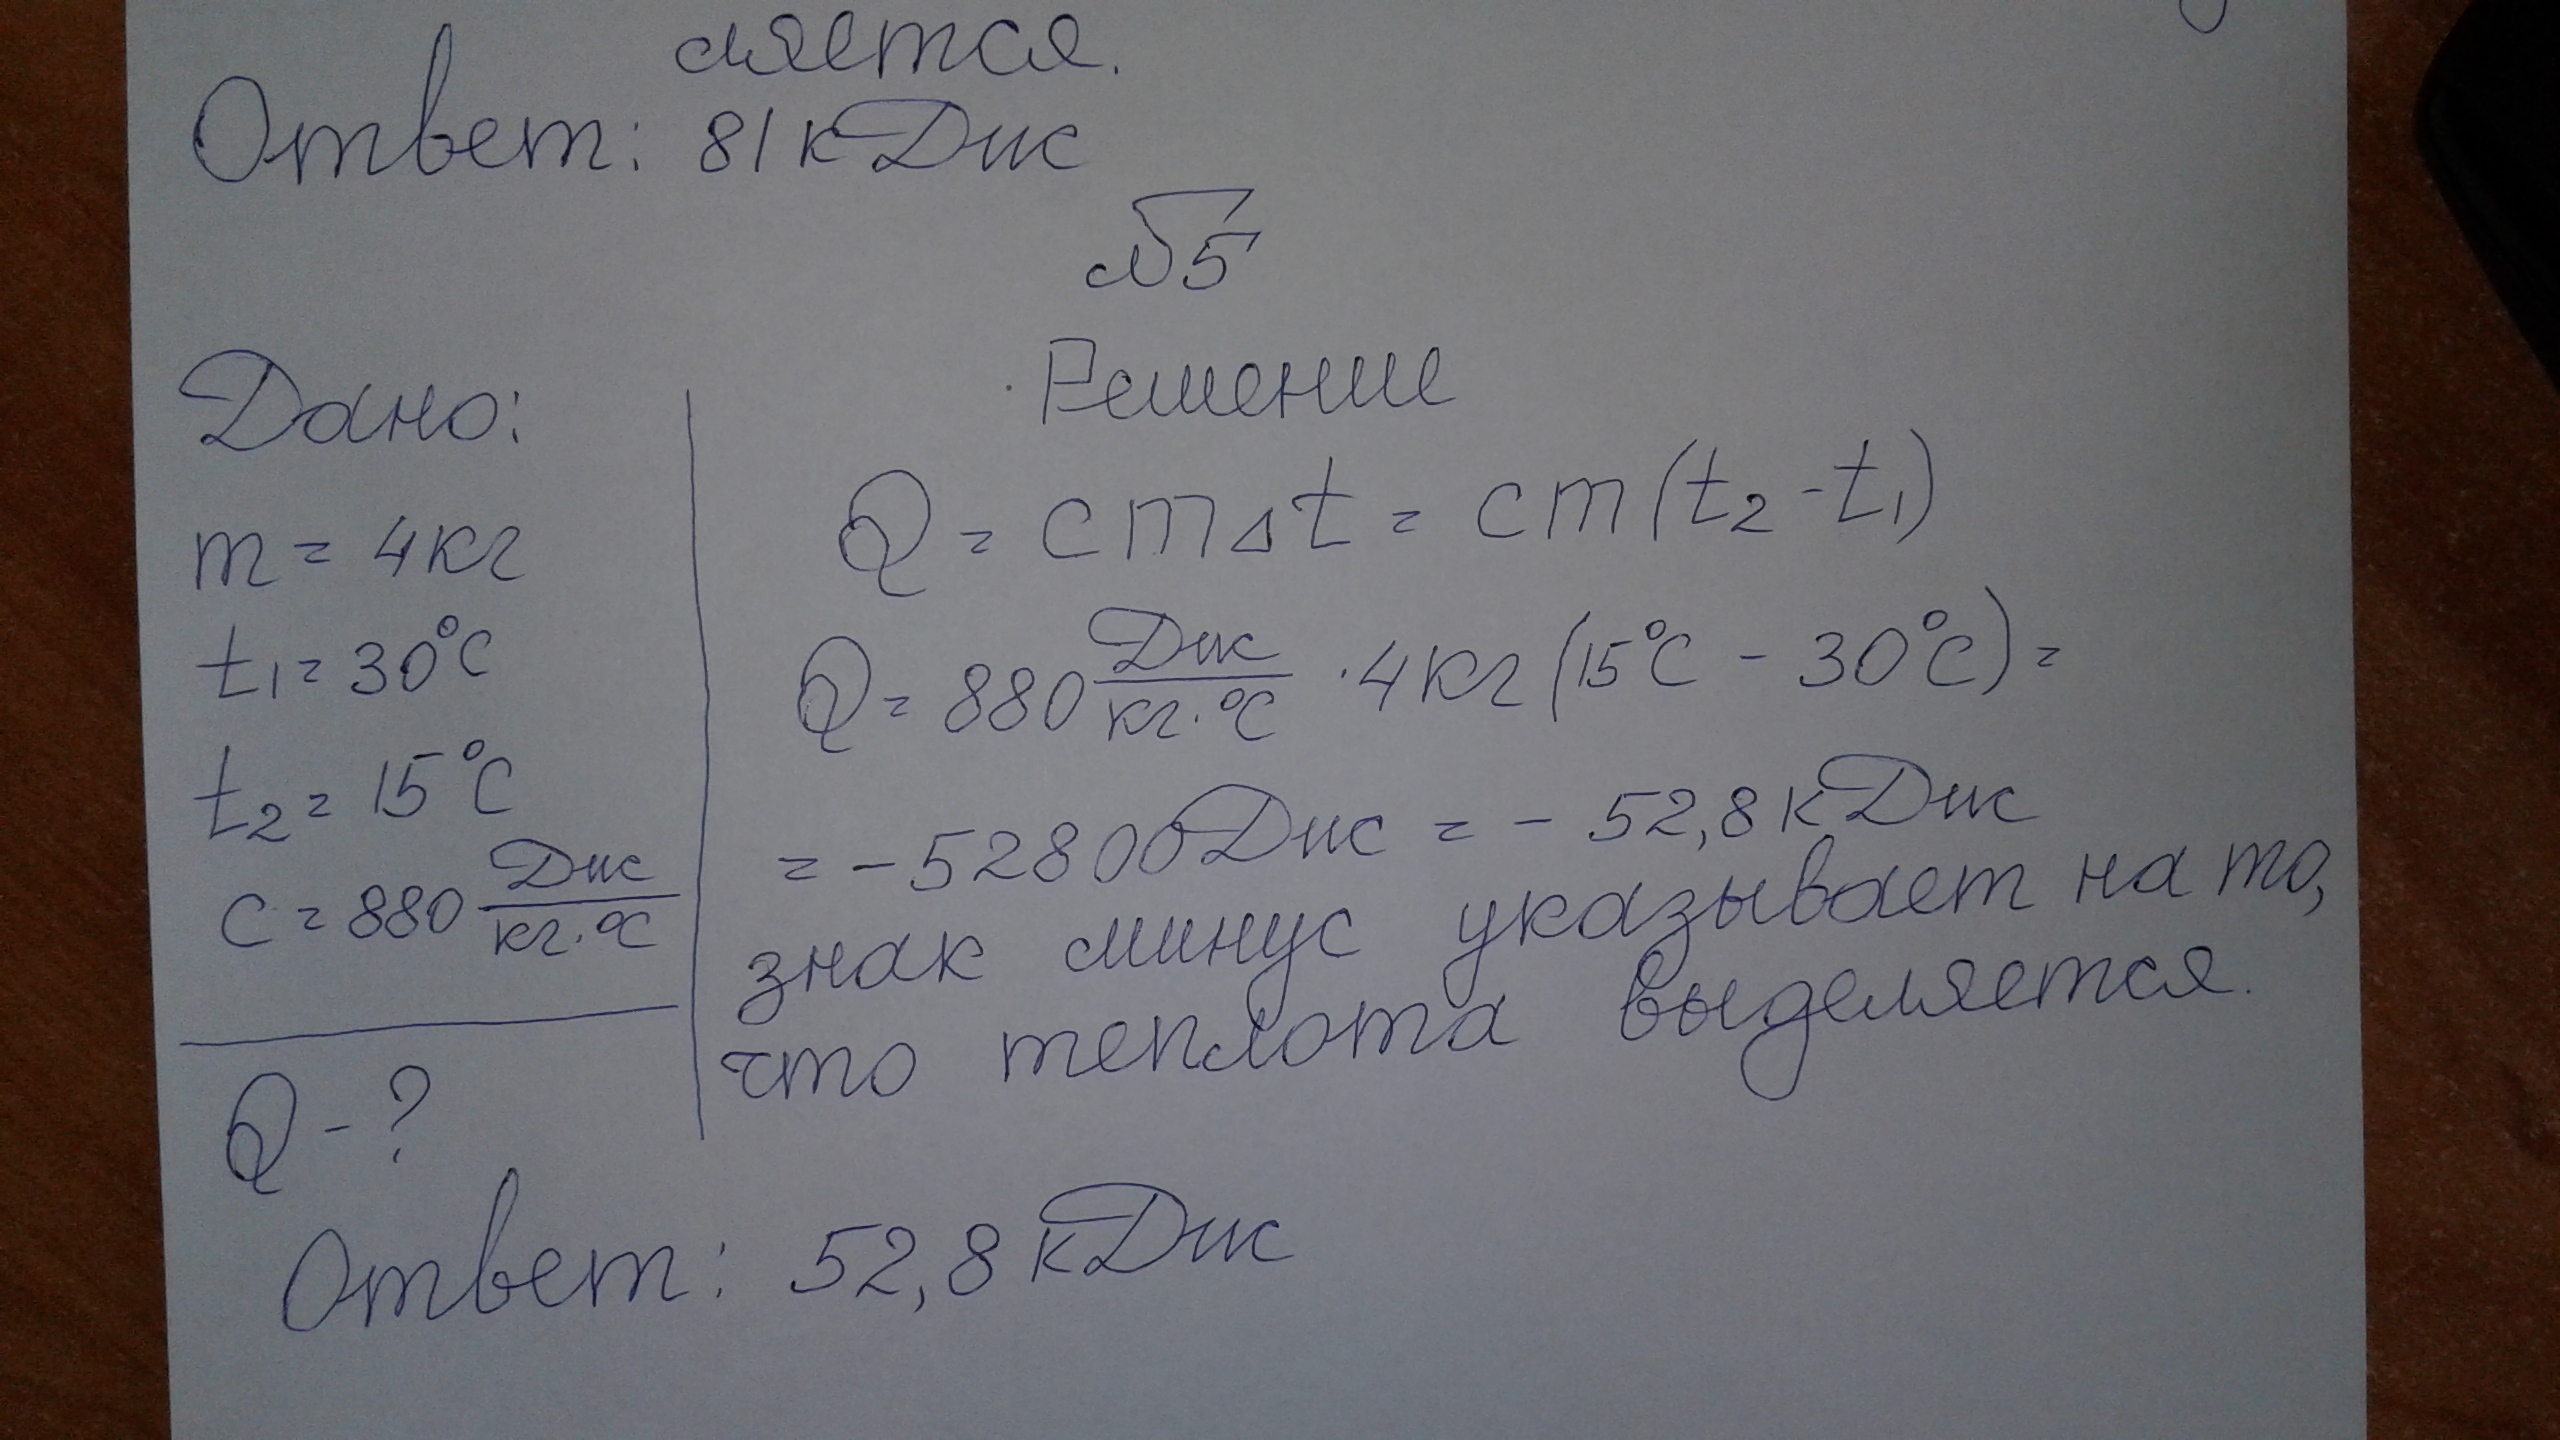 ляется.
Ответ: 81 кДж
№5
Дано:
m = 4 кг
t₁ = 30°C
t₂ = 15°C
c = 880 Дж/кг·°C
Q - ?
Решение
Q = cmΔt = cm(t₂ - t₁)
Q = 880 Дж/кг·°C · 4 кг (15°C - 30°C) =
= - 52800 Дж = - 52,8 кДж
знак минус указывает на то,
что теплота выделяется.
Ответ: 52,8 кДж